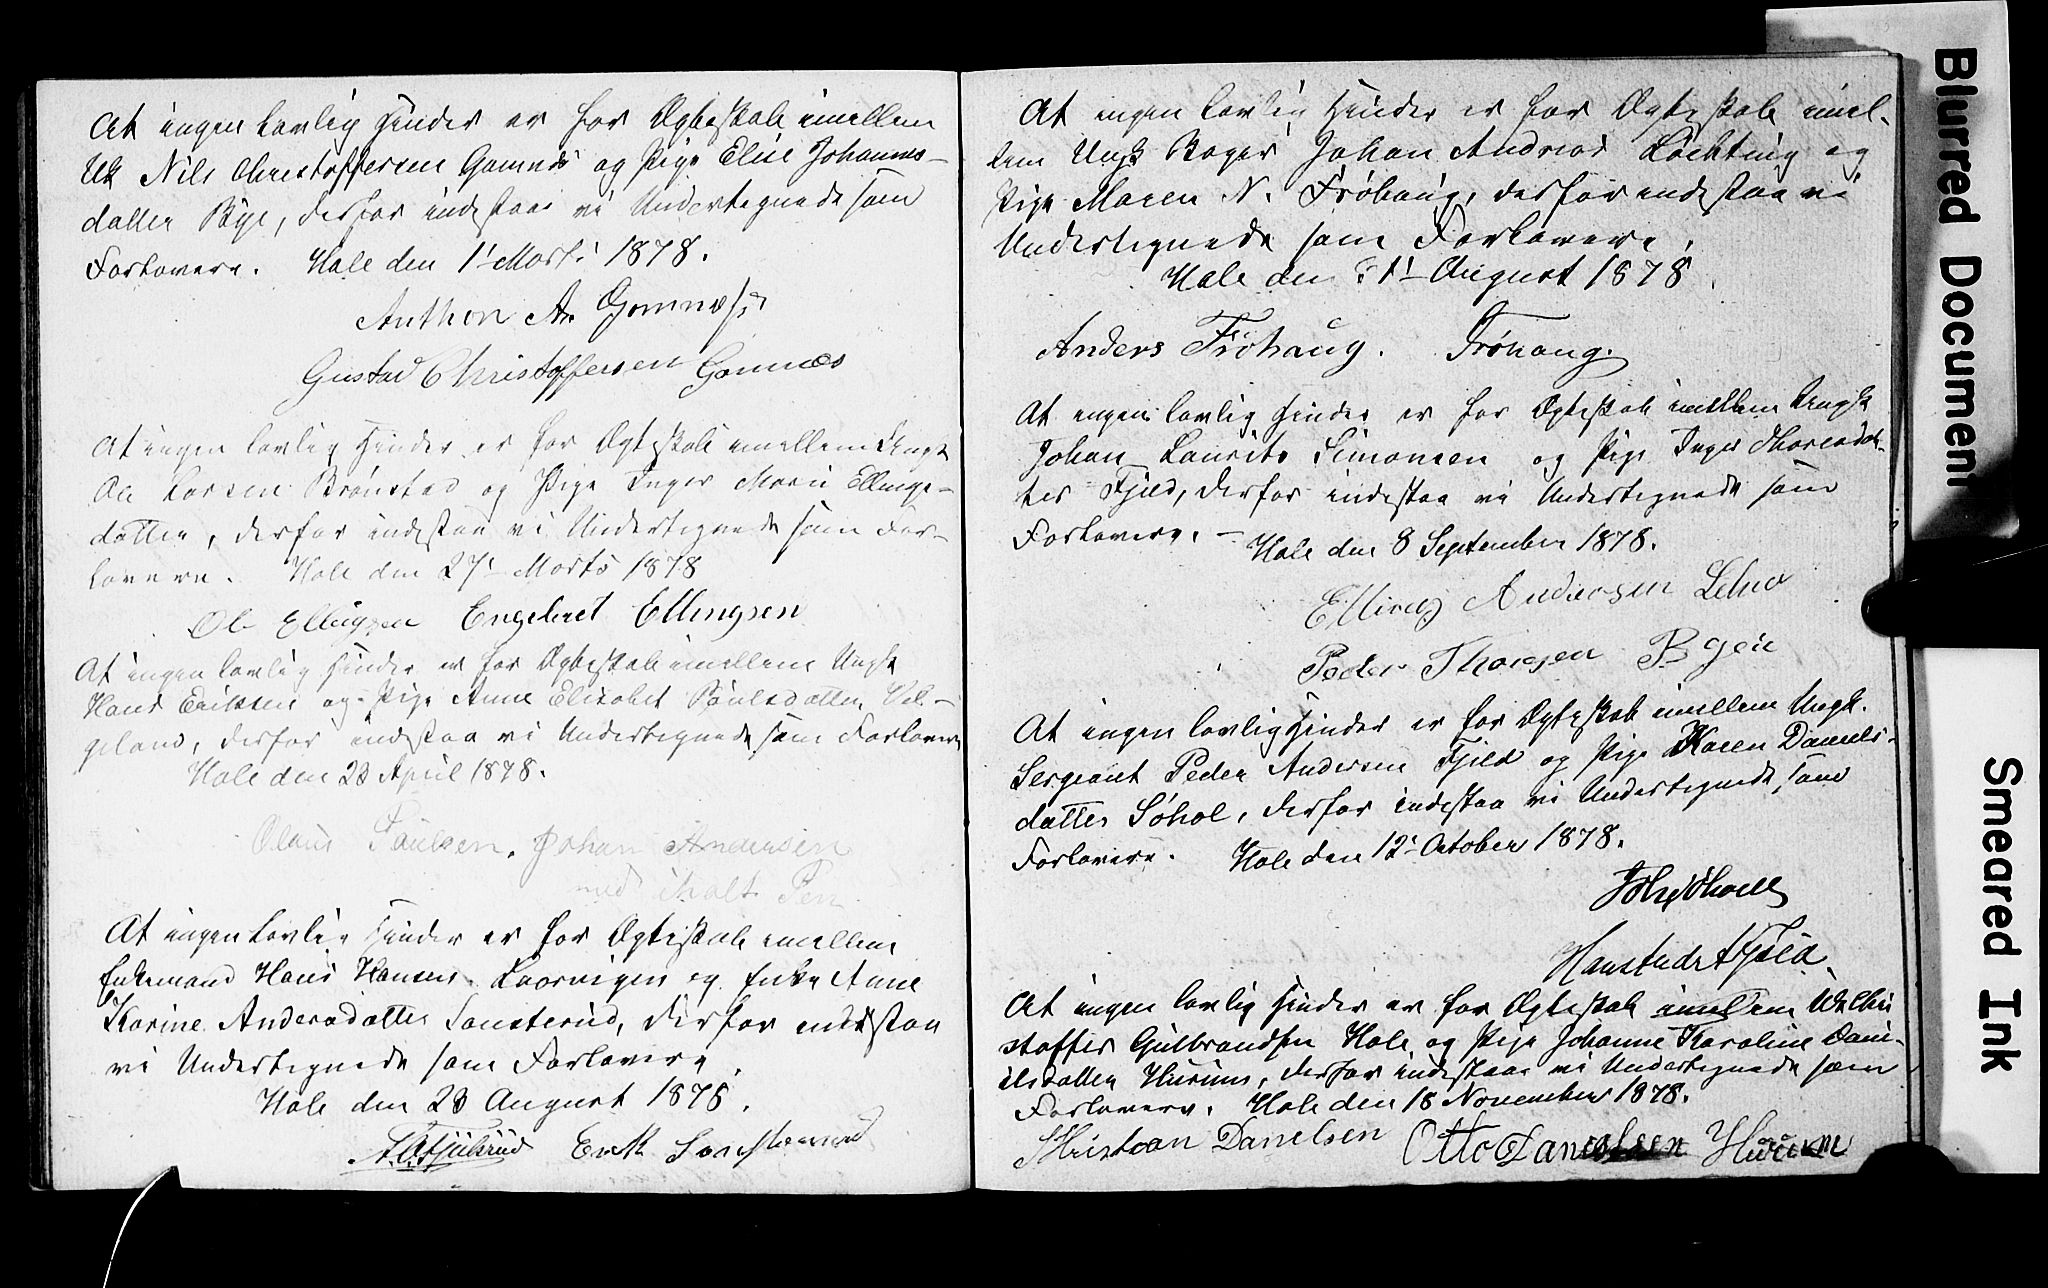 At ingen lovlig Hinder er for Ægteskab imellem
Uk Nils Christoffersen Gomnæs og Pige Elise Johannes-
datter Bye, derfor indestaae vi Undertegnede som
Forlovere. Hole den 1ste Marts 1878.
Anthon A. Gomnæs
Gustav Christoffersen Gomnæs
At ingen lovlig Hinder er for Ægteskab imellem Ungk
Ole Larsen Brønstad og Pige Inger Marie Ellings-
datter, derfor indestaa vi Undertegnede som For-
lovere. Hole den 27 Marts 1878
Ole Ellingsen Engebret Ellingsen
At ingen lovlig Hinder er for Ægteskab imellem Ungk
Hans Eriksen og Pige Anne Elisabet Paulsdatter Vel-
geland, derfor indestaa vi Undertegnede som Forlovere
Hole den 23 April 1878.
Olaus Paulsen. Johan Andersen
med iholt Pen
At ingen Lovlig Hinder er for Ægteskab imellem
Enkemand Hans Hansen og Enke Anne
Karine Andersdatter Sonsterud, derfor indestaa
vi Undertegnede som Forlovere.
Hole den 23 August 1878.
Erik Sonsterud
At ingen lovlig Hinder er for Ægteskab imel-
lem Ungk Bager Johan Andreas Løchting og
Pige Maren N. Frøhaug, derfor indestaa vi
Undertegnede som Forlovere.
Hole den 31 August 1878.
Anders Frøhaug. Frøhaug.
At ingen lovlig Hinder er for Ægteskab imellem Ungk
Johan Laurits Simonsen og Pige Inger Thoresdat-
ter Fjeld, derfor indestaa vi Undertegnede som
Forlovere. - Hole den 8 September 1878.
Elling Andersen Lehne
Peder Thoresen
At ingen lovlig Hinder er for Ægteskab imellem Ungk.
Sergeant Peder Andersen Fjeld og Pige Karen Daniels-
datter Søhol, derfor indestaa vi Undertegnede som
Forlovere. Hole den 12 October 1878.
Fjeld
At ingen lovlig Hinder er for Ægteskab imellem Uk Chri
stoffer Gulbrandsen Hole og Pige Johanne Karoline Dani-
elsdatter Hurum, derfor indestaae vi Undertegnede som
Forlovere. Hole den 18 November 1878.
Khristian Danelsen Otto Danielsen Hurum
Blurred Document
Smeared Ink